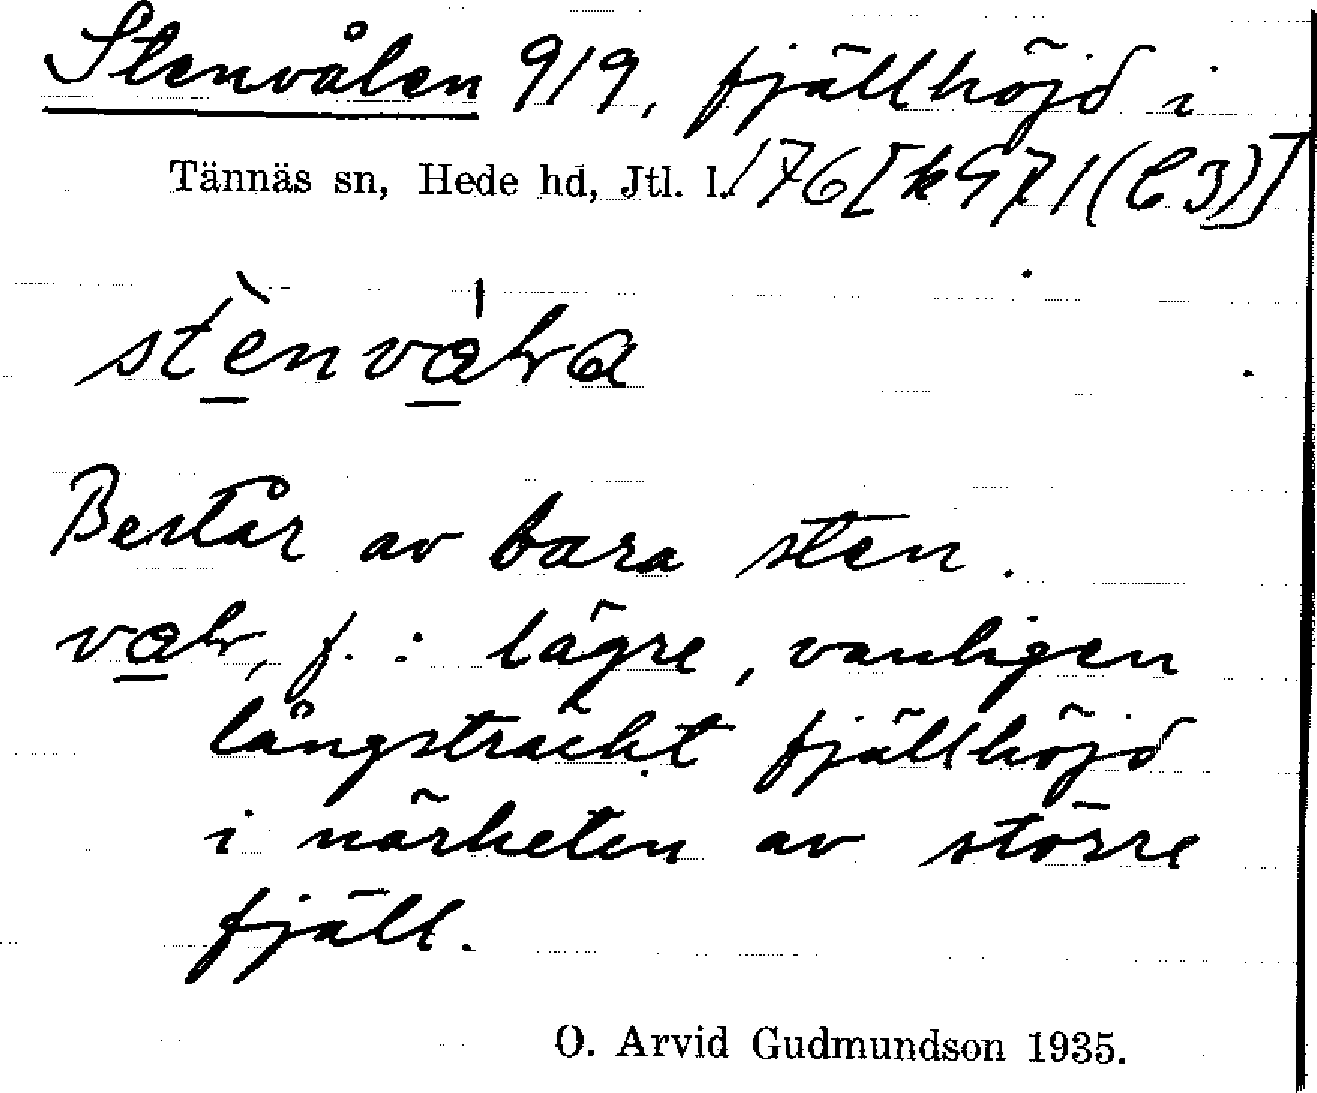 Stenvålen 919, fjällhöjd i
Tännäs sn, Hede hd, Jtl. l. 176 [k 971 (C3)]
Består av bara sten.
f.: lägre, vanligen
långsträckt fjällhöjd
i närheten av större
fjäll.
O. Arvid Gudmundson 1935.